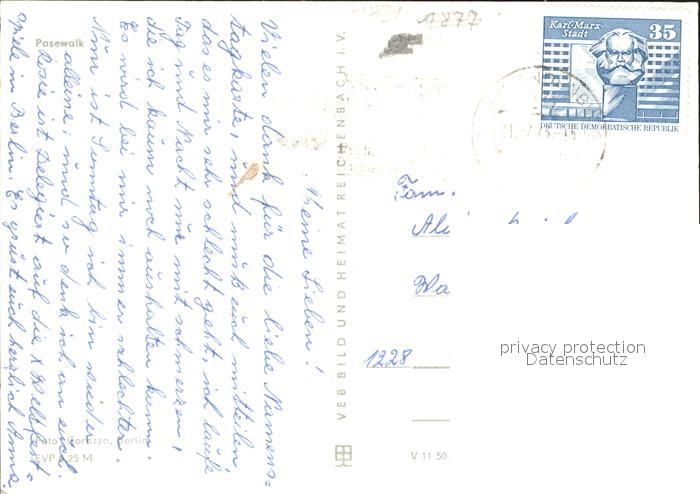 Meine Lieben!
Vielen dank für die liebe Namens=
tagkarte, und muß euch mitteilen
das es mir sehr schlecht geht, ich laufe
Tag und Nacht nur mit schmerzen,
die ich kaum noch aushalten kann.
Es wird bei mir immer schlechter.
Nun ist Sonntag ich bin wieder
alleine, und so denk ich an euch.
ist Delegiert auf die X Weltfest=
spiele in Berlin. Es grüst euch herzlich Anna
Pasewalk
Foto: Corazza, Berlin
EVP 0,25 M
VEB BILD UND HEIMAT REICHENBACH I. V.
V 11 50
1877
Karl-Marx-
Stadt
35
DEUTSCHE DEMOKRATISCHE REPUBLIK
Fam.
Al
Wa
1228
privacy protection
Datenschutz